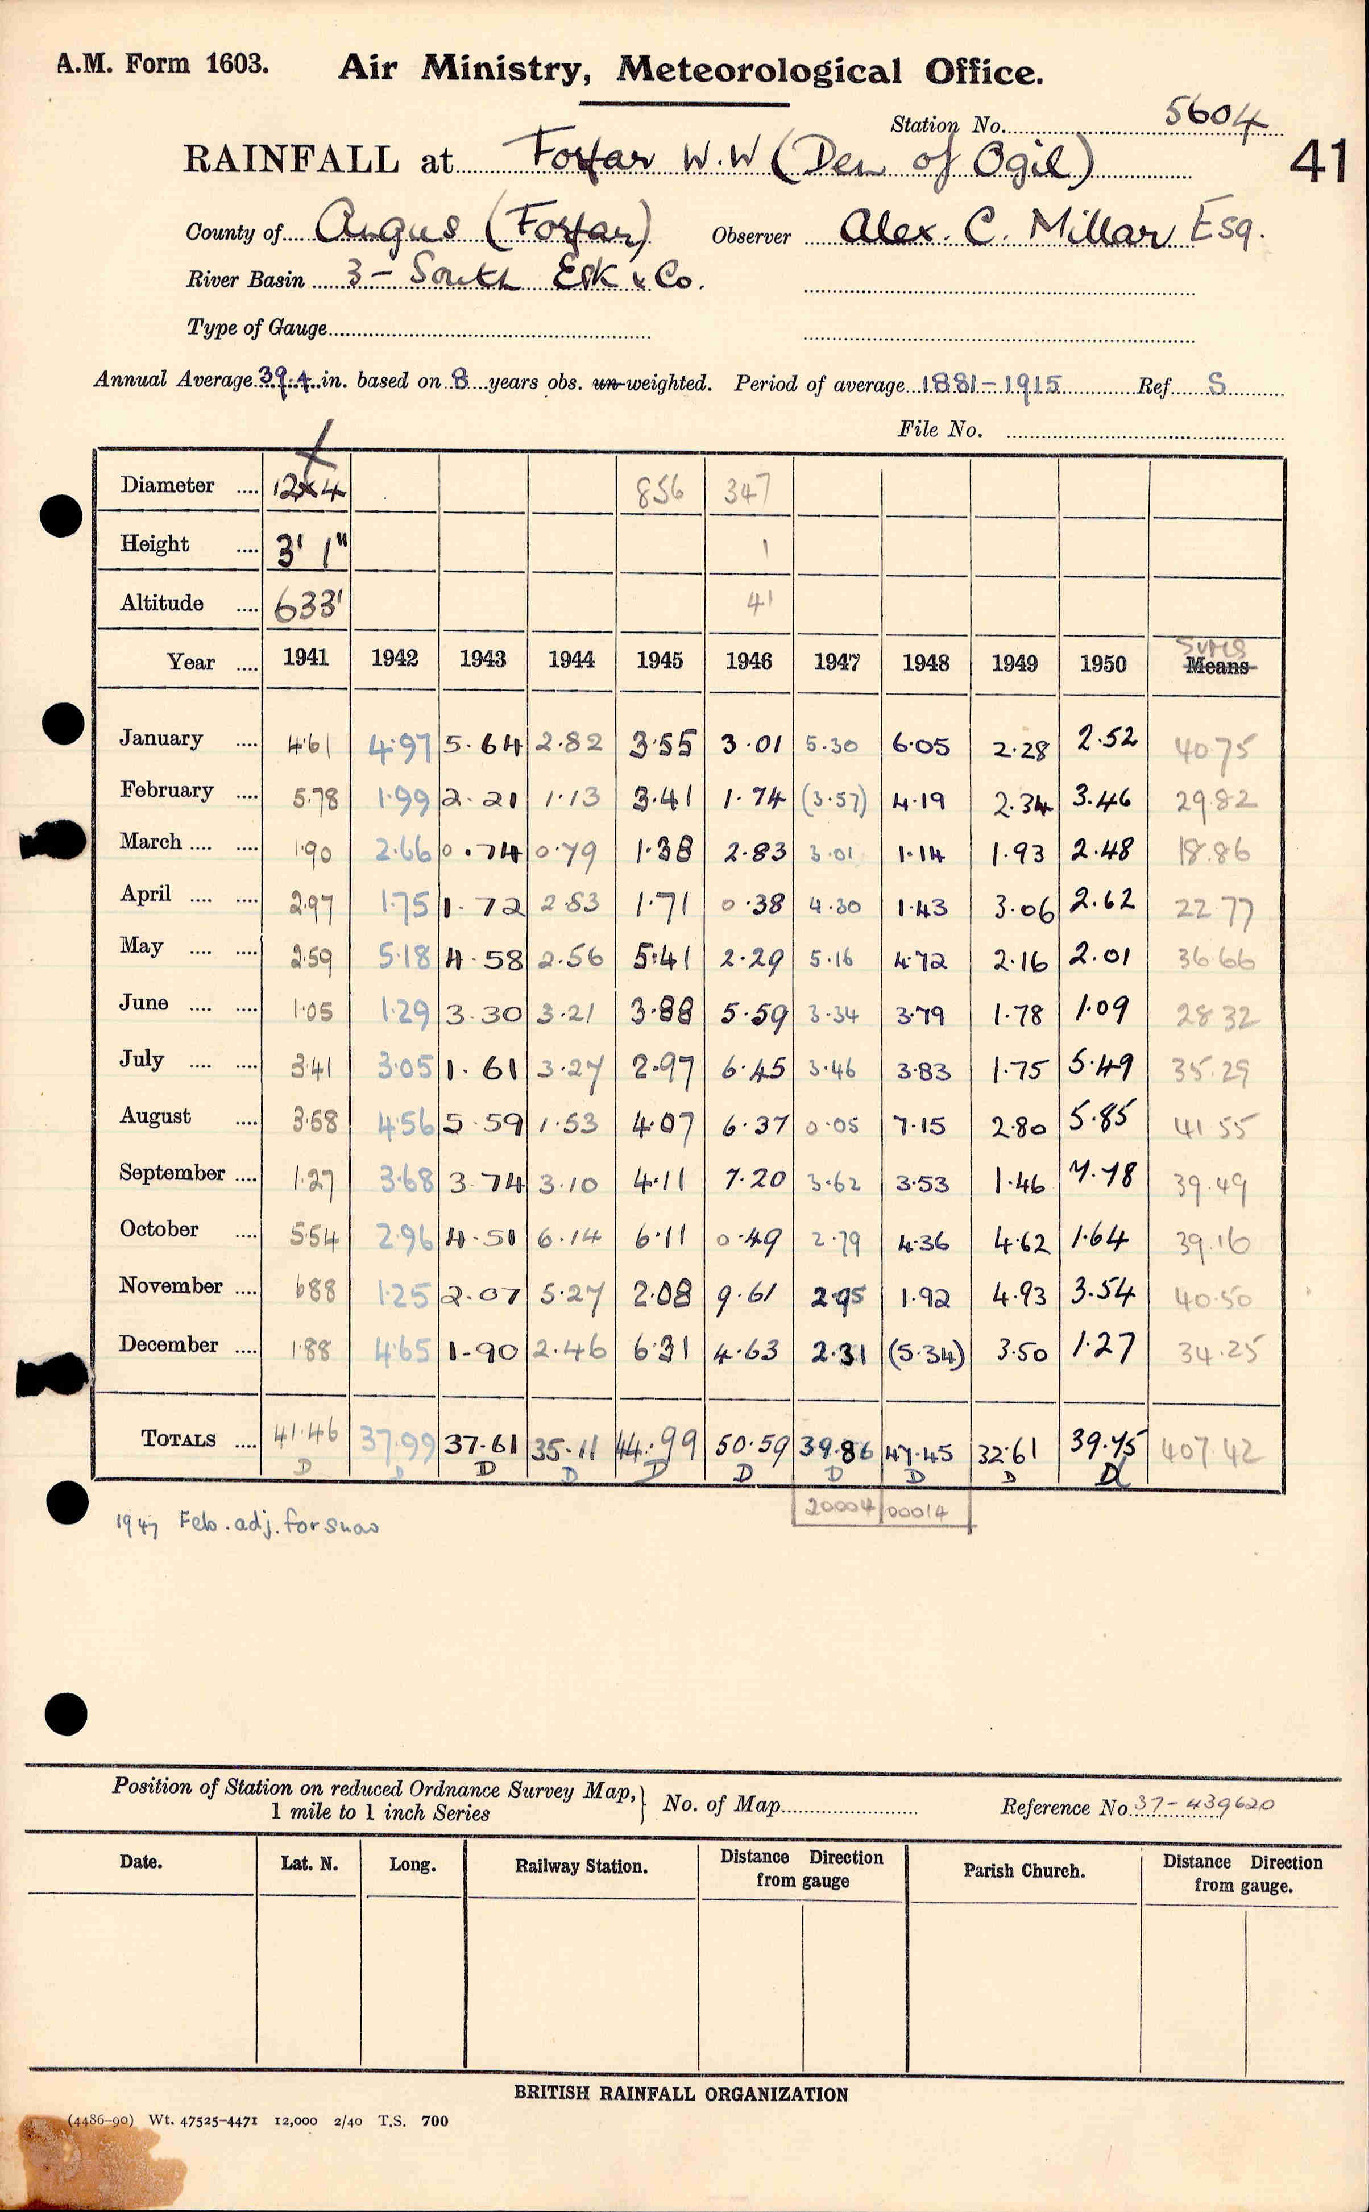 A.M. Form 1603. Air Ministry, Meteorological Office.
Station No. 5604
RAINFALL at Forfar W.W (Den of Ogil) 41
County of Angus (Forfar) Observer Alex. C. Millar Esq.
River Basin 3 - South Esk & Co.
Type of Gauge
Annual Average 39.4 in. based on 8 years obs. un-weighted. Period of average 1881-1915 Ref S
File No.
Diameter 12x4 856 347
Height 3' 1" 1
Altitude 633' 41
Sums
Year 1941 1942 1943 1944 1945 1946 1947 1948 1949 1950 Means
January 4.61 4.97 5.64 2.82 3.55 3.01 5.30 6.05 2.28 2.52 40.75
February 5.78 1.99 2.21 1.13 3.41 1.74 (3.57) 4.19 2.34 3.46 29.82
March 1.90 2.66 0.74 0.79 1.38 2.83 3.01 1.14 1.93 2.48 18.86
April 2.97 1.75 1.72 2.83 1.71 0.38 4.30 1.43 3.06 2.62 22.77
May 2.59 5.18 4.58 2.56 5.41 2.29 5.16 4.72 2.16 2.01 36.66
June 1.05 1.29 3.30 3.21 3.88 5.59 3.34 3.79 1.78 1.09 28.32
July 3.41 3.05 1.61 3.27 2.97 6.45 3.46 3.83 1.75 5.49 35.29
August 3.58 4.56 5.59 1.53 4.07 6.37 0.05 7.15 2.80 5.85 41.55
September 1.27 3.68 3.74 3.10 4.11 7.20 3.62 3.53 1.46 7.78 39.49
October 5.54 2.96 4.51 6.14 6.11 0.49 2.79 4.36 4.62 1.64 39.16
November 6.88 1.25 2.07 5.27 2.08 9.61 2.95 1.92 4.93 3.54 40.50
December 1.88 4.65 1.90 2.46 6.31 4.63 2.31 (5.34) 3.50 1.27 34.25
TOTALS 41.46 37.99 37.61 35.11 44.99 50.59 39.86 47.45 32.61 39.75 407.42
D D D D D D D D D D
20004 00014
1947 Feb. adj. for snow
Position of Station on reduced Ordnance Survey Map,
1 mile to 1 inch Series } No. of Map Reference No 37-439620
Date. Lat. N. Long. Railway Station. Distance Direction from gauge Parish Church. Distance Direction from gauge.
BRITISH RAINFALL ORGANIZATION
(4486-90) Wt. 47525-4471 12,000 2/40 T.S. 700